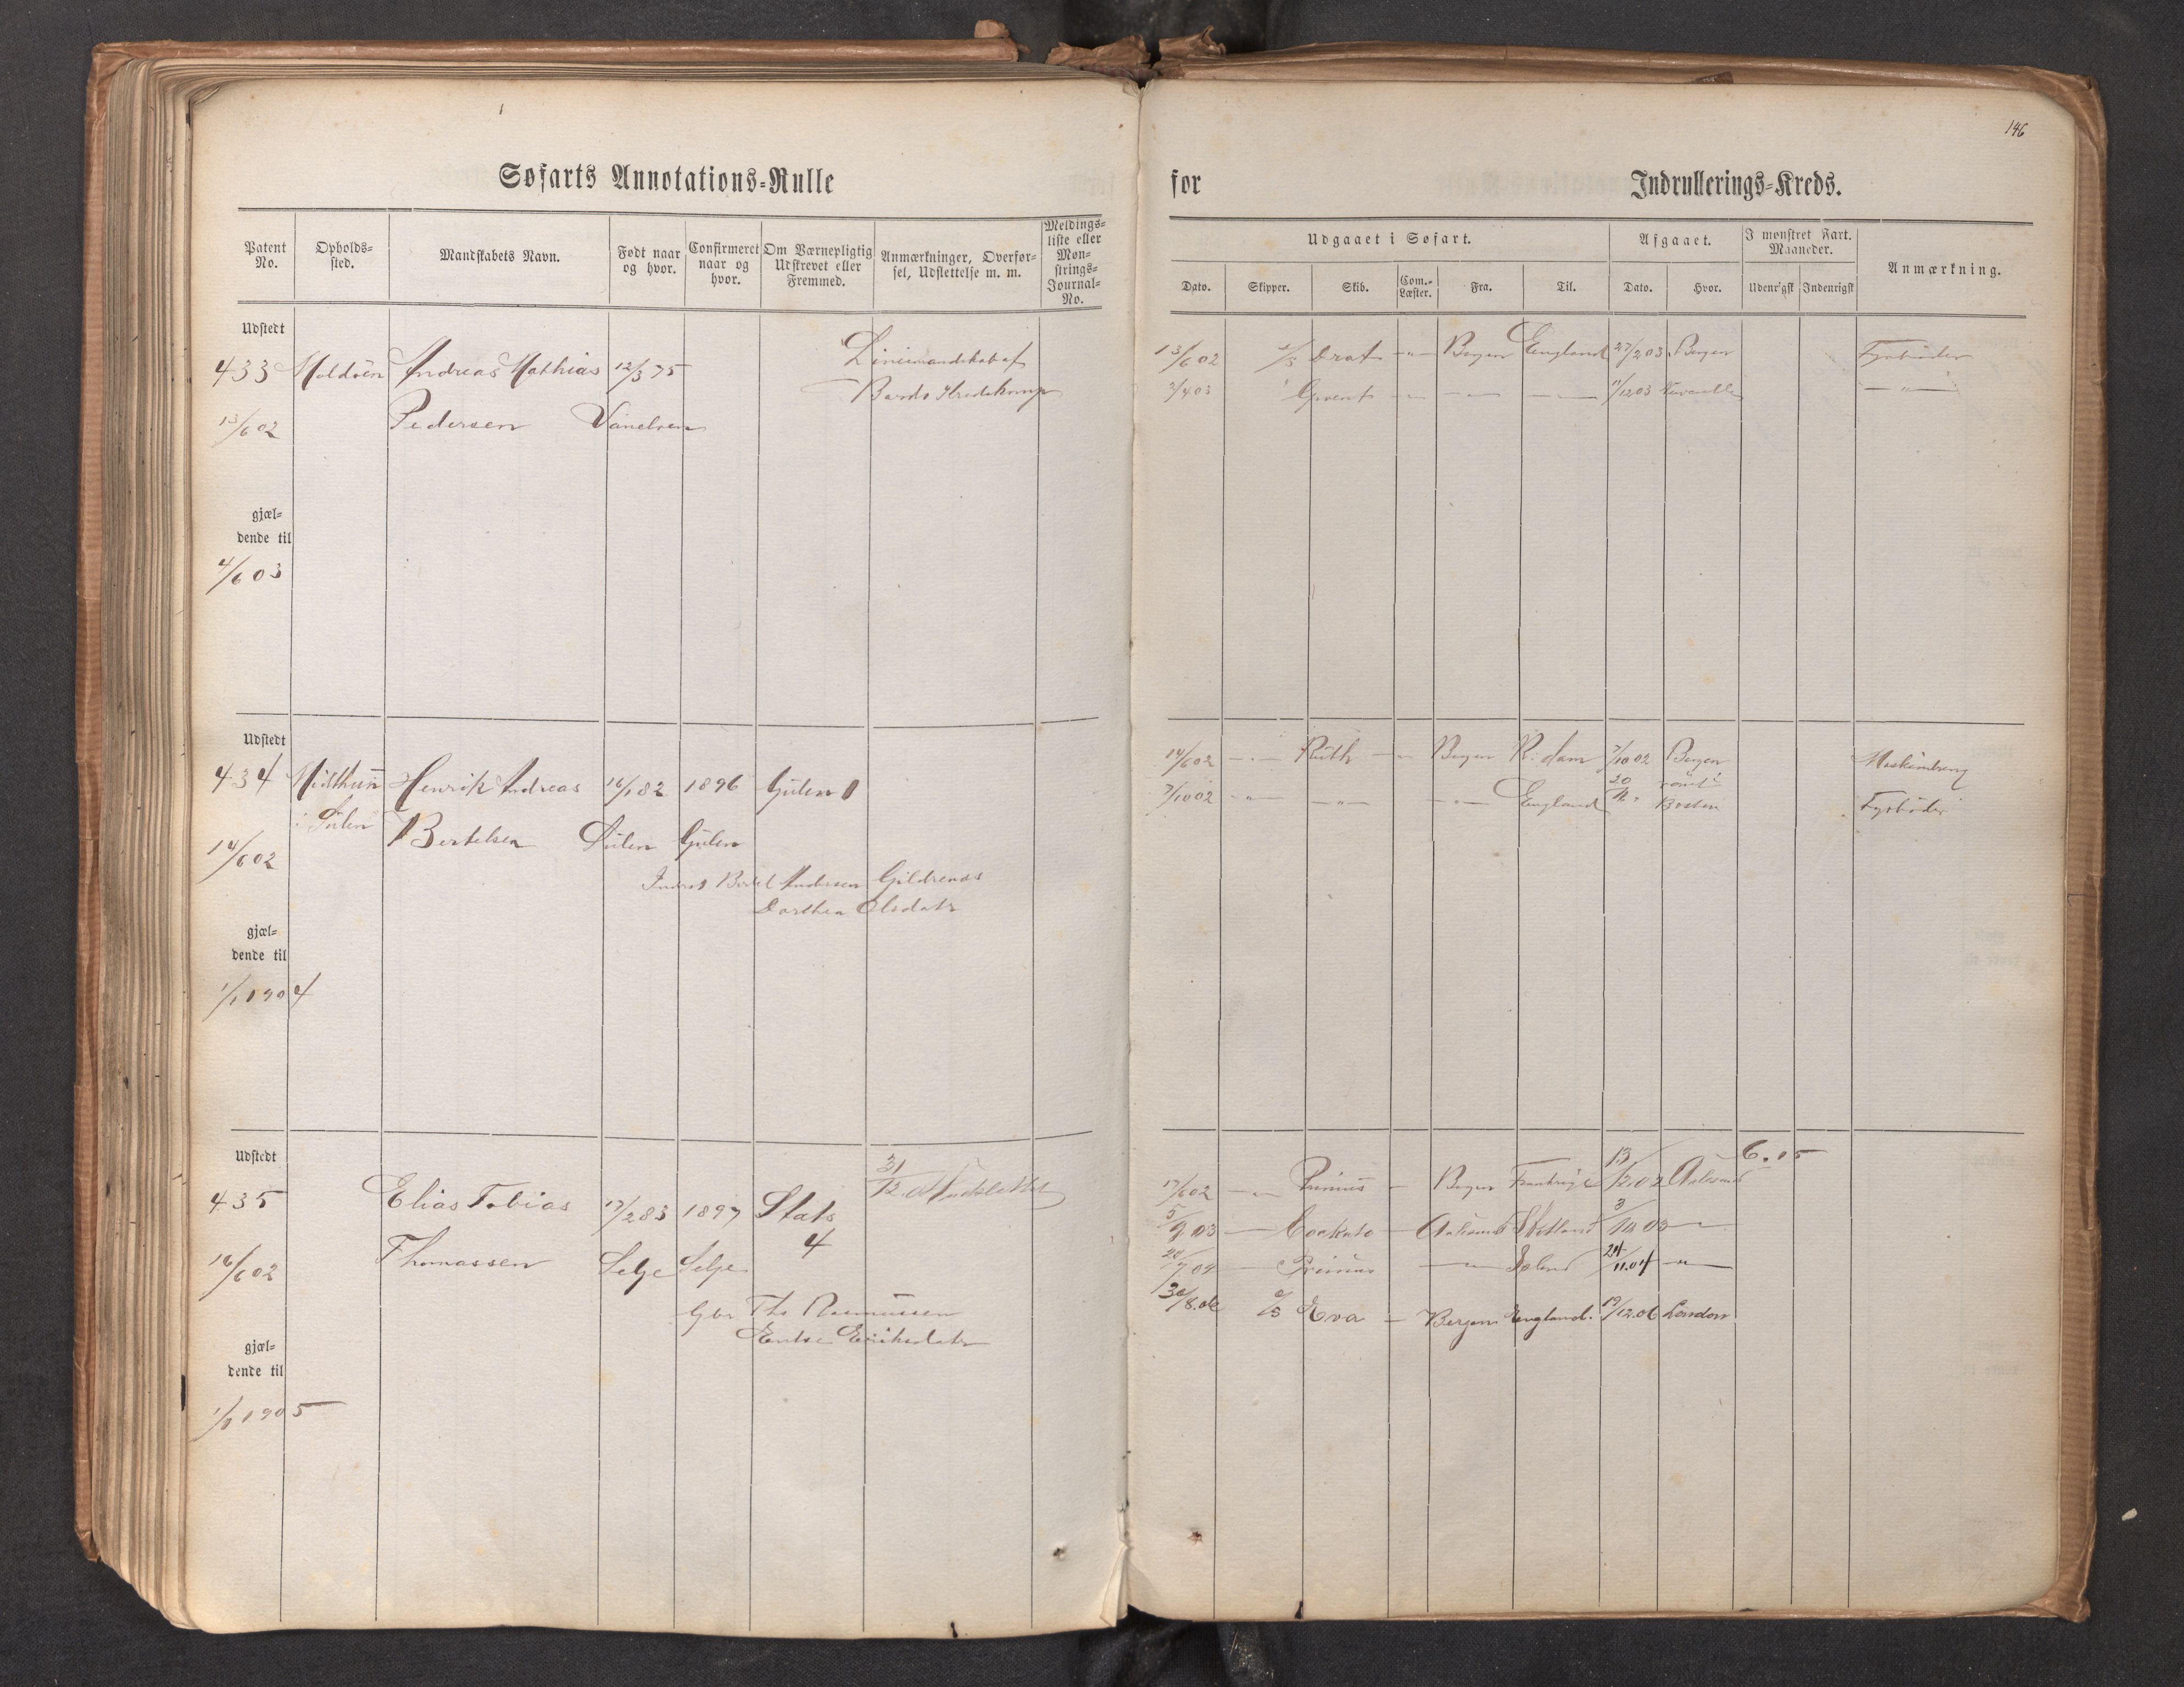 146
Søfarts Annotations=Rulle
for Indrullerings=Kreds.
Patent No.
Opholds=sted.
Mandskabets Navn.
Født naar og hvor.
Confirmeret naar og hvor.
Om Værnepligtig Udskrevet eller Fremmed.
Anmærkninger, Overførsel, Udslettelse m. m.
Meldings=liste eller Mønstrings=Journal=No.
Udgaaet i Søfart.
Afgaaet.
I mønstret Fart. Maaneder.
Anmærkning.
Dato. Skipper. Skib. Com.=Læster. Fra. Til. Dato. Hvor. Udenrigsk Indenrigsk
Udstedt
433 Moldøen Andreas Mathias 12/3 75
13/6 02 Pedersen Vanelven
gjæl=
dende til
4/6 03
13/6 02 Bergen England 27/2 03 Bergen Fyrbøder
2/4 03 11/12 03
Udstedt
434 Midthun Henrik Andreas 16/1 82 1896 Gulen
i Sulen
14/6 02 Bertelsen Sulen Gulen
Bertel Andersen Gildrenæs
Dorthea Olsdatr
gjæl=
dende til
1/1 1904
14/6 02 Ruth Bergen R.dam 7/10 02 Bergen
7/10 02 England Boston Fyrbøder
Udstedt
435 Elias Tobias 17/2 83 1897 Stat
4
16/6 02 Thomassen Selje Selje
Ths Rasmussen
Eriksdatr
gjæl=
dende til
1/1 1905
31/12 Udslettet
6.15
17/6 02 Primus Bergen Frankrige 13/12.02 Aalesund
5/9 03 Aalesund Shetland 3/10 03
20/7 04 Primus Island 24/11.04
30/8.06 D/S Eva Bergen England. 19/12.06 London